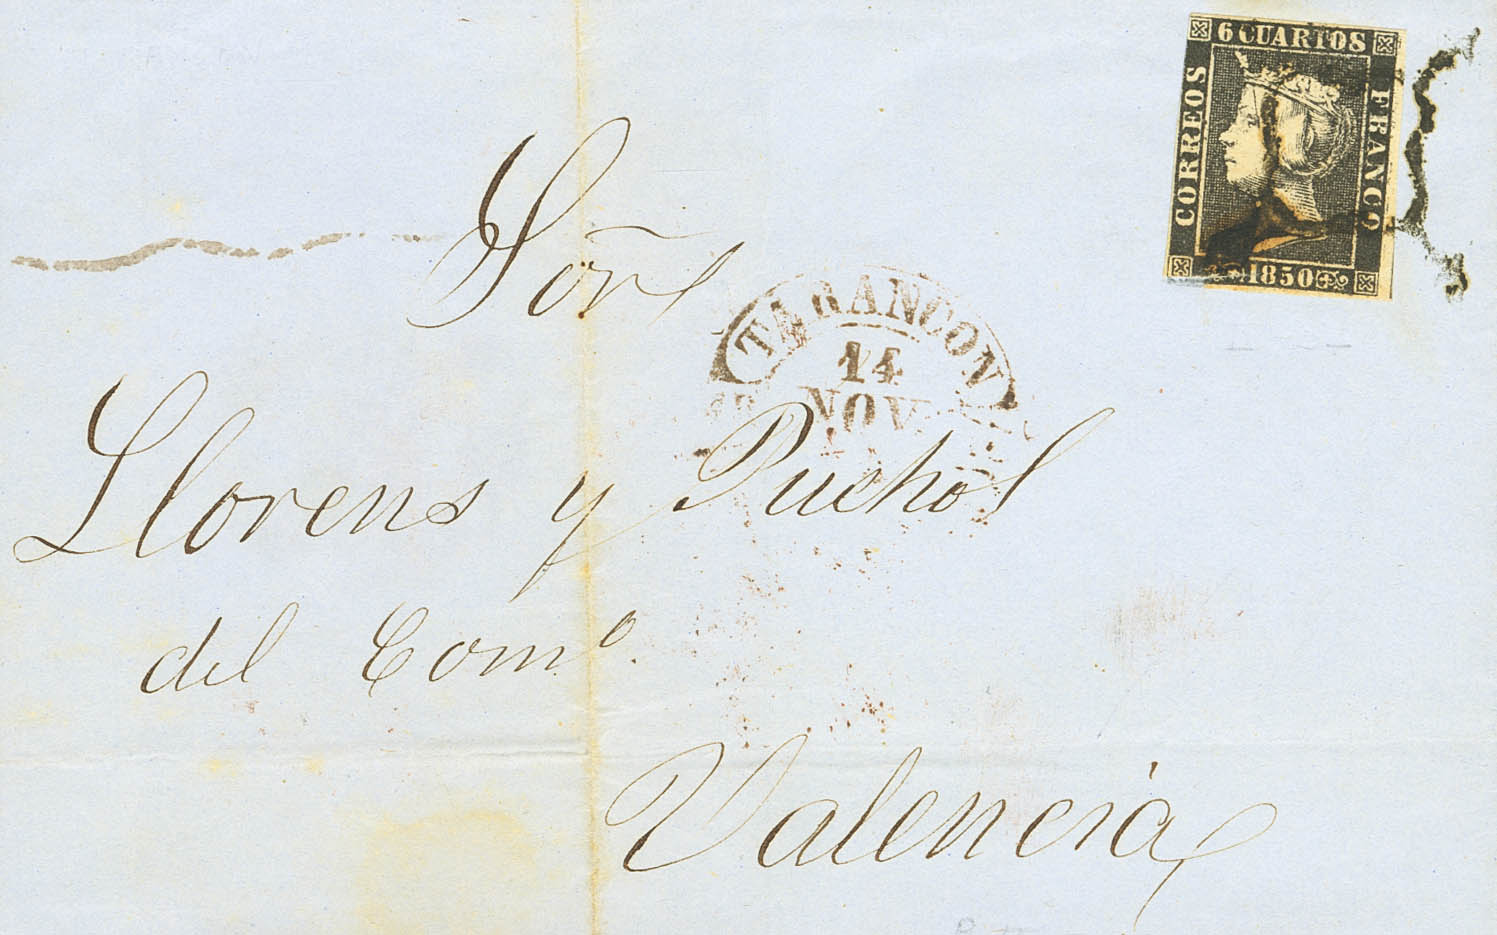 6 CUARTOS
CORREOS
FRANCO
1850
Sōres
TARANCON
14
NOV
Llorens y Puchol
del Comº.
Valencia